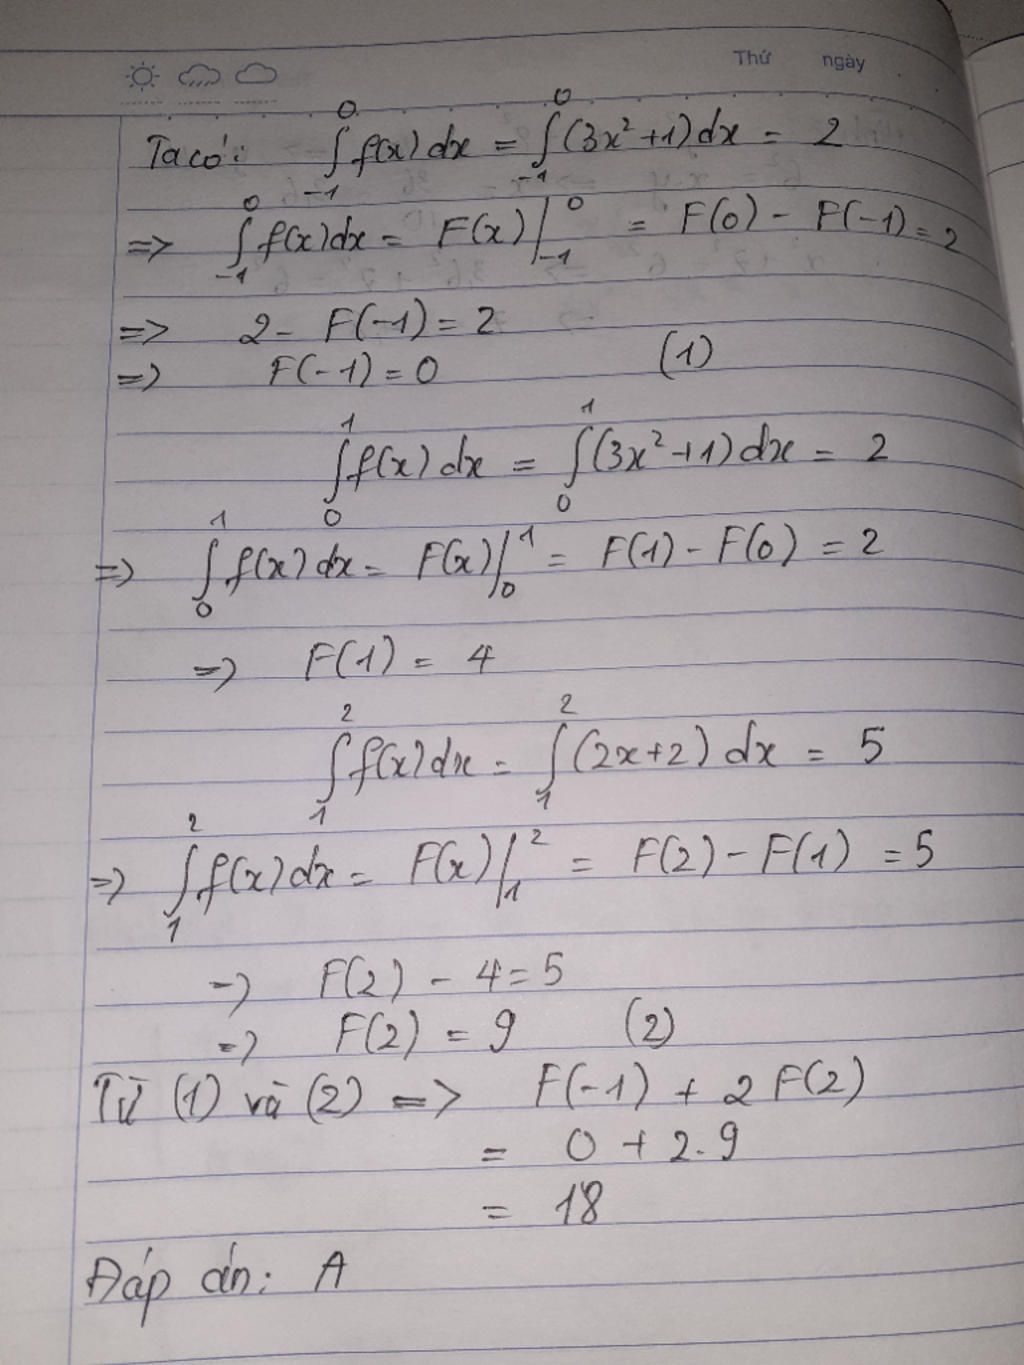 Thứ ngày
Ta có: ∫₋₁⁰ f(x)dx = ∫₋₁⁰ (3x²+1)dx = 2
=> ∫₋₁⁰ f(x)dx = F(x)|₋₁⁰ = F(0) - F(-1) = 2
=> 2 - F(-1) = 2
=> F(-1) = 0 (1)
∫₀¹ f(x)dx = ∫₀¹ (3x²+1)dx = 2
=> ∫₀¹ f(x)dx = F(x)|₀¹ = F(1) - F(0) = 2
=> F(1) = 4
∫₁² f(x)dx = ∫₁² (2x+2)dx = 5
=> ∫₁² f(x)dx = F(x)|₁² = F(2) - F(1) = 5
=> F(2) - 4 = 5
=> F(2) = 9 (2)
Từ (1) và (2) => F(-1) + 2F(2)
= 0 + 2.9
= 18
Đáp án: A